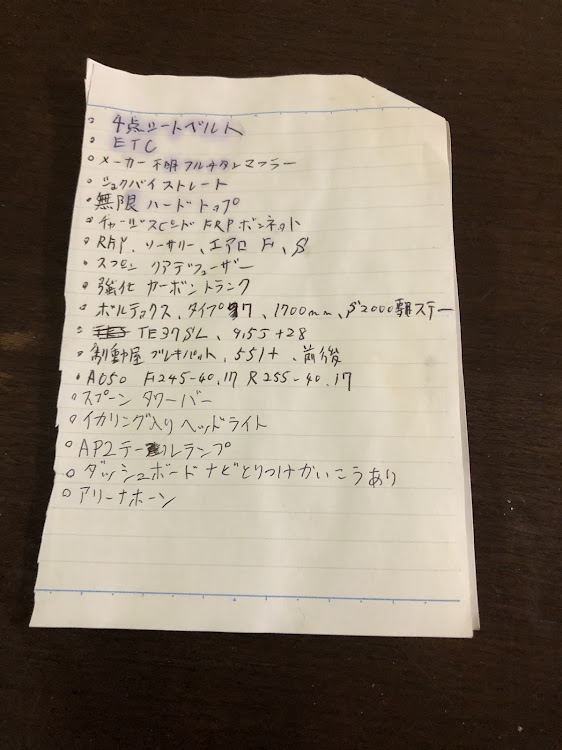 。4点シートベルト
。ETC
。メーカー不明フルチタンマフラー
。ジュクバイストレート
。無限ハードトップ
。チャージスピード FRPボンネット
。RAP、ソーサリー、エアロ F、S
。スプーン リアデフューザー
。強化カーボントランク
。ボルテックス、タイプ7、1700mm、S2000専用ステー
。TE37SL、9.5J+28
。制動屋ブレーキパット、551+、前後
・A050 F245-40.17 R255-40.17
。スプーン タワーバー
。イカリング入りヘッドライト
。AP2テールランプ
。ダッシュボードなどとりつけかいこうあり
。アリーナホーン